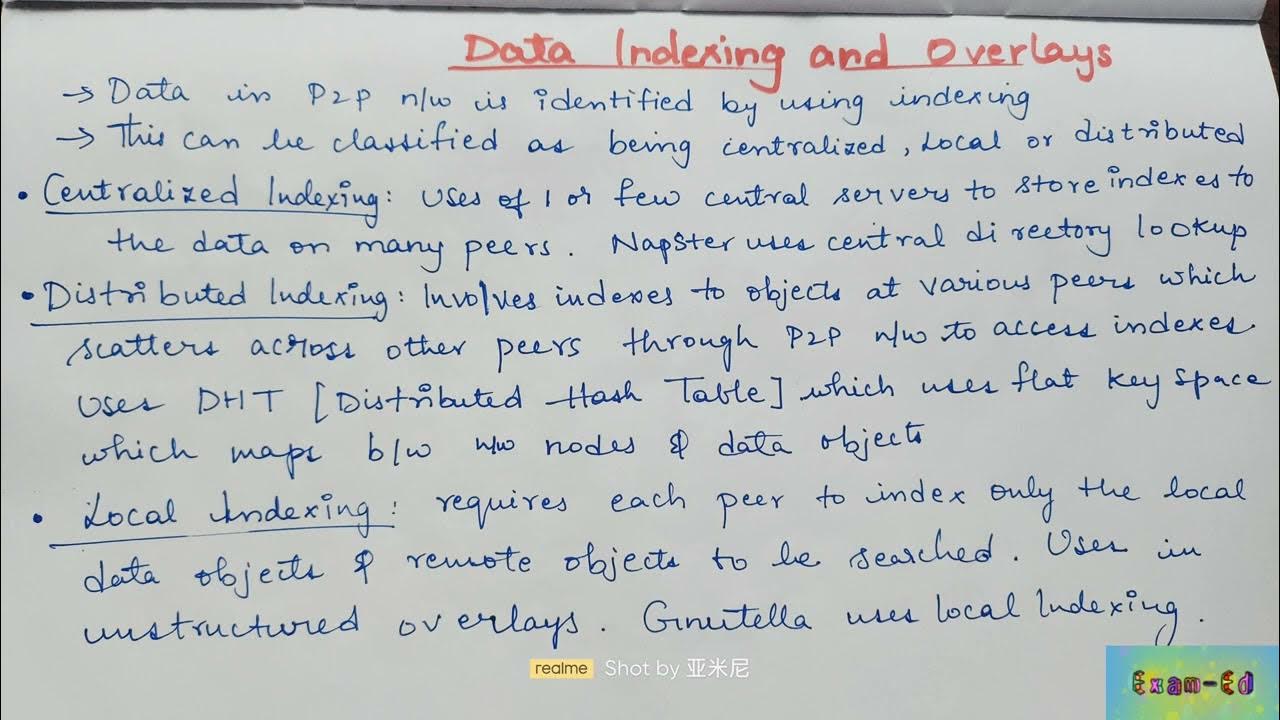 Data Indexing and Overlays
→ Data in P2P n/w is identified by using indexing
→ This can be classified as being centralized, Local or distributed
• Centralized Indexing: Uses of 1 or few central servers to store indexes to
the data on many peers. Napster uses central directory lookup
• Distributed Indexing: Involves indexes to objects at various peers which
scatters across other peers through P2P n/w to access indexes.
Uses DHT [Distributed Hash Table] which uses flat key space
which maps b/w n/w nodes & data objects
• Local Indexing: requires each peer to index only the local
data objects & remote objects to be searched. Uses in
unstructured overlays. Gnutella uses local Indexing.
realme Shot by 亚米尼
Exam-Ed